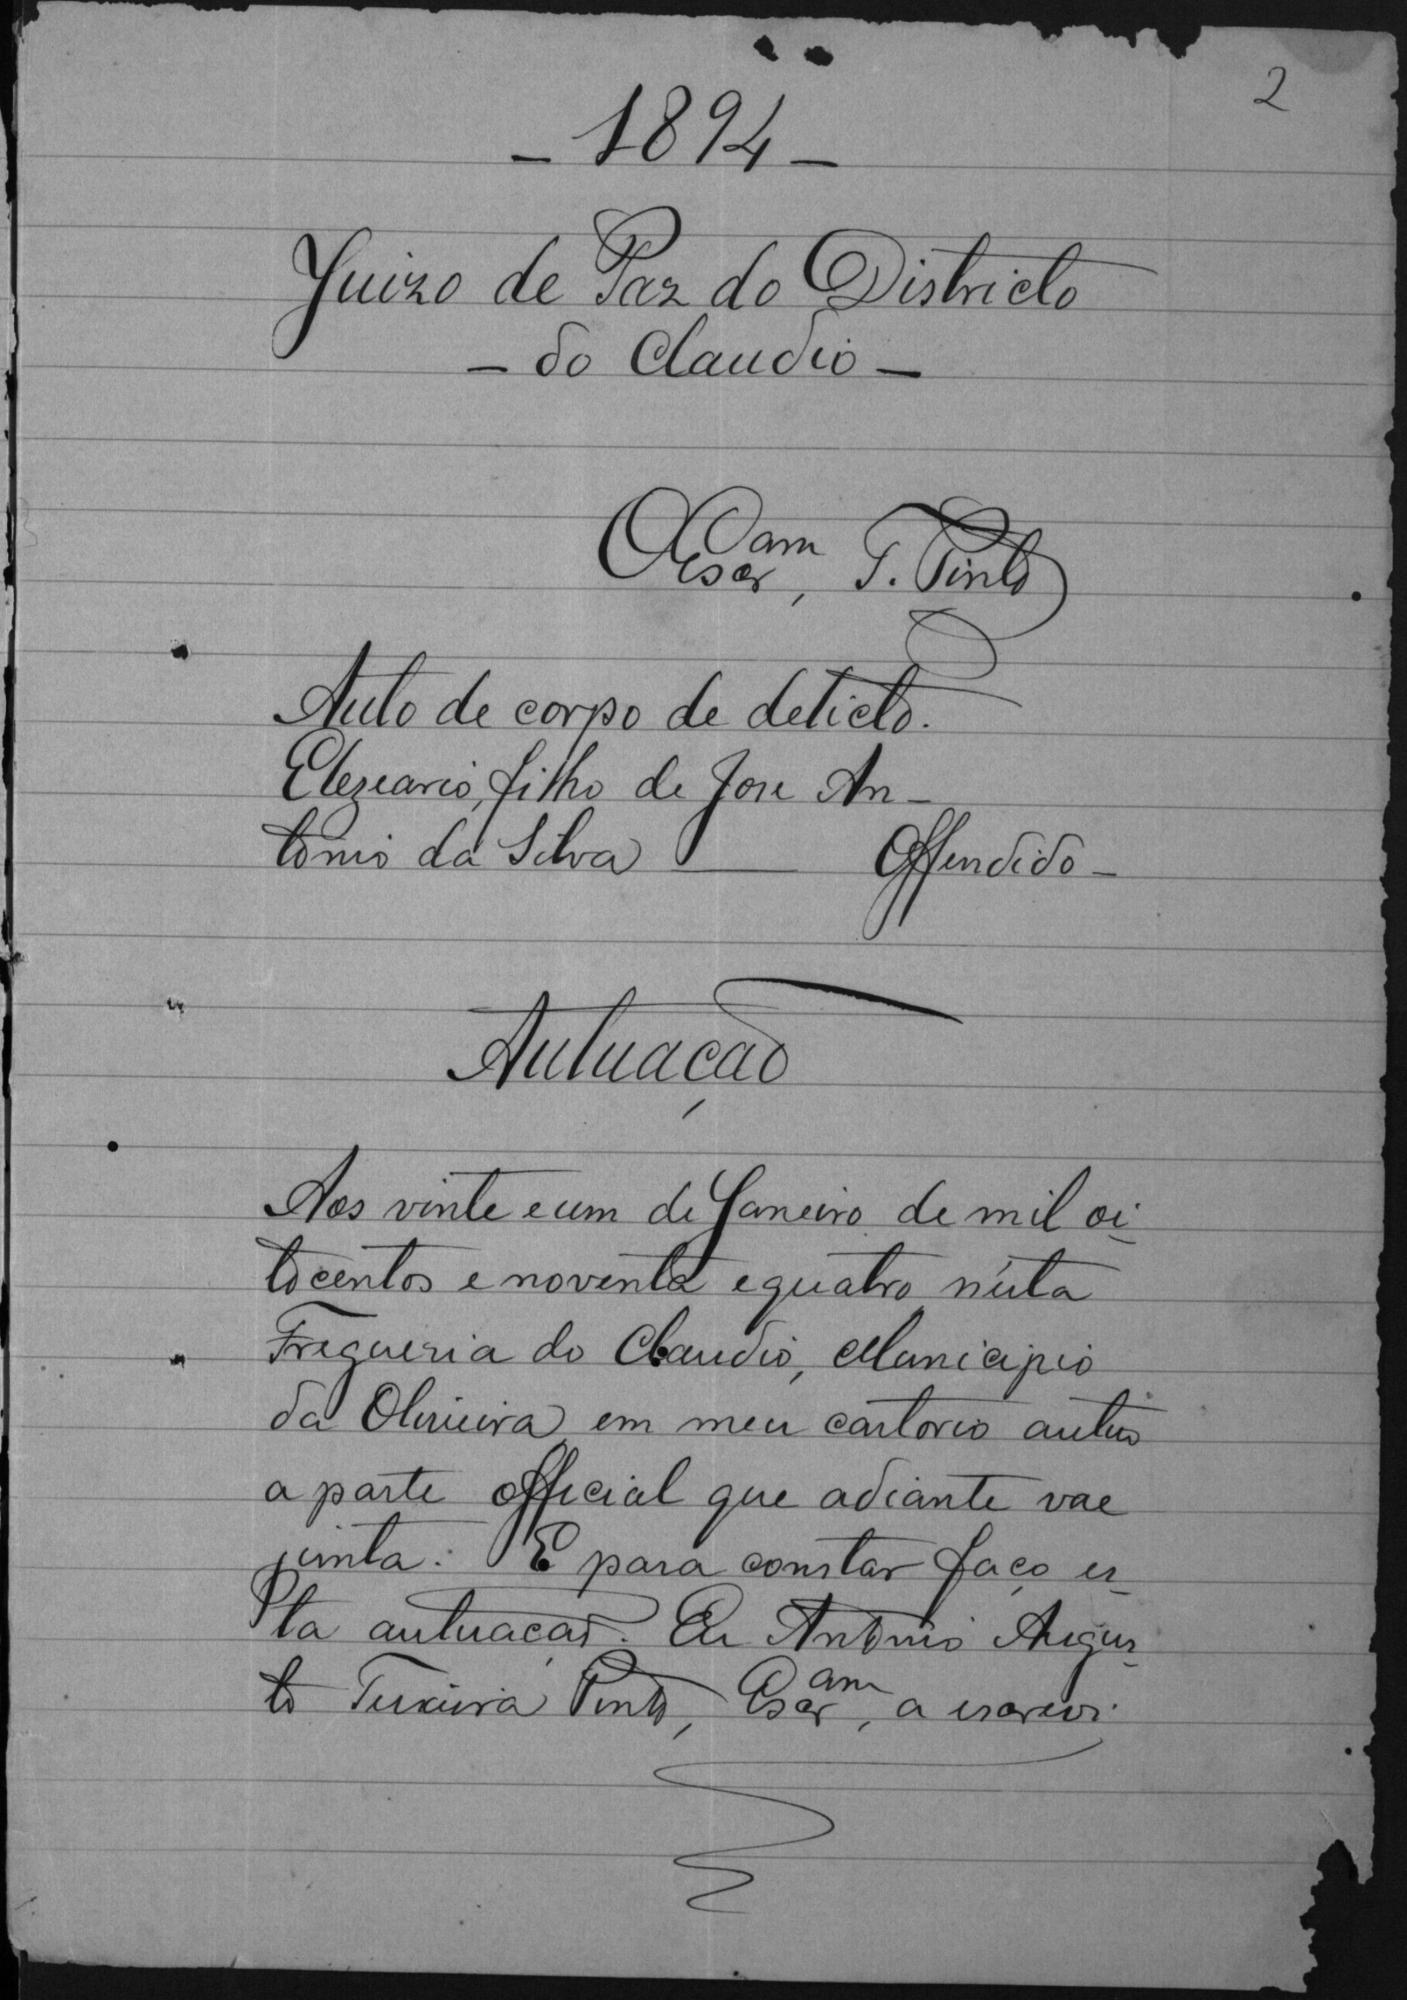 2
- 1894 -
Juizo de Paz do Districto
- do Claudio -
O Escr.am, T. Pinto
Auto de corpo de delicto.
Elezeario, filho de José An-
tonio da Silva — Offendido -
Autuação
Aos vinte e um de Janeiro de mil oi-
tocentos e noventa e quatro, n'esta
Freguesia do Claudio, Municipio
da Oliveira em meu cartorio autuo
a parte official que adiante vae
junta. E para constar faço es-
ta autuação. Eu Antonio Augus-
to Teixeira Pinto, Escr.am, a escrevi